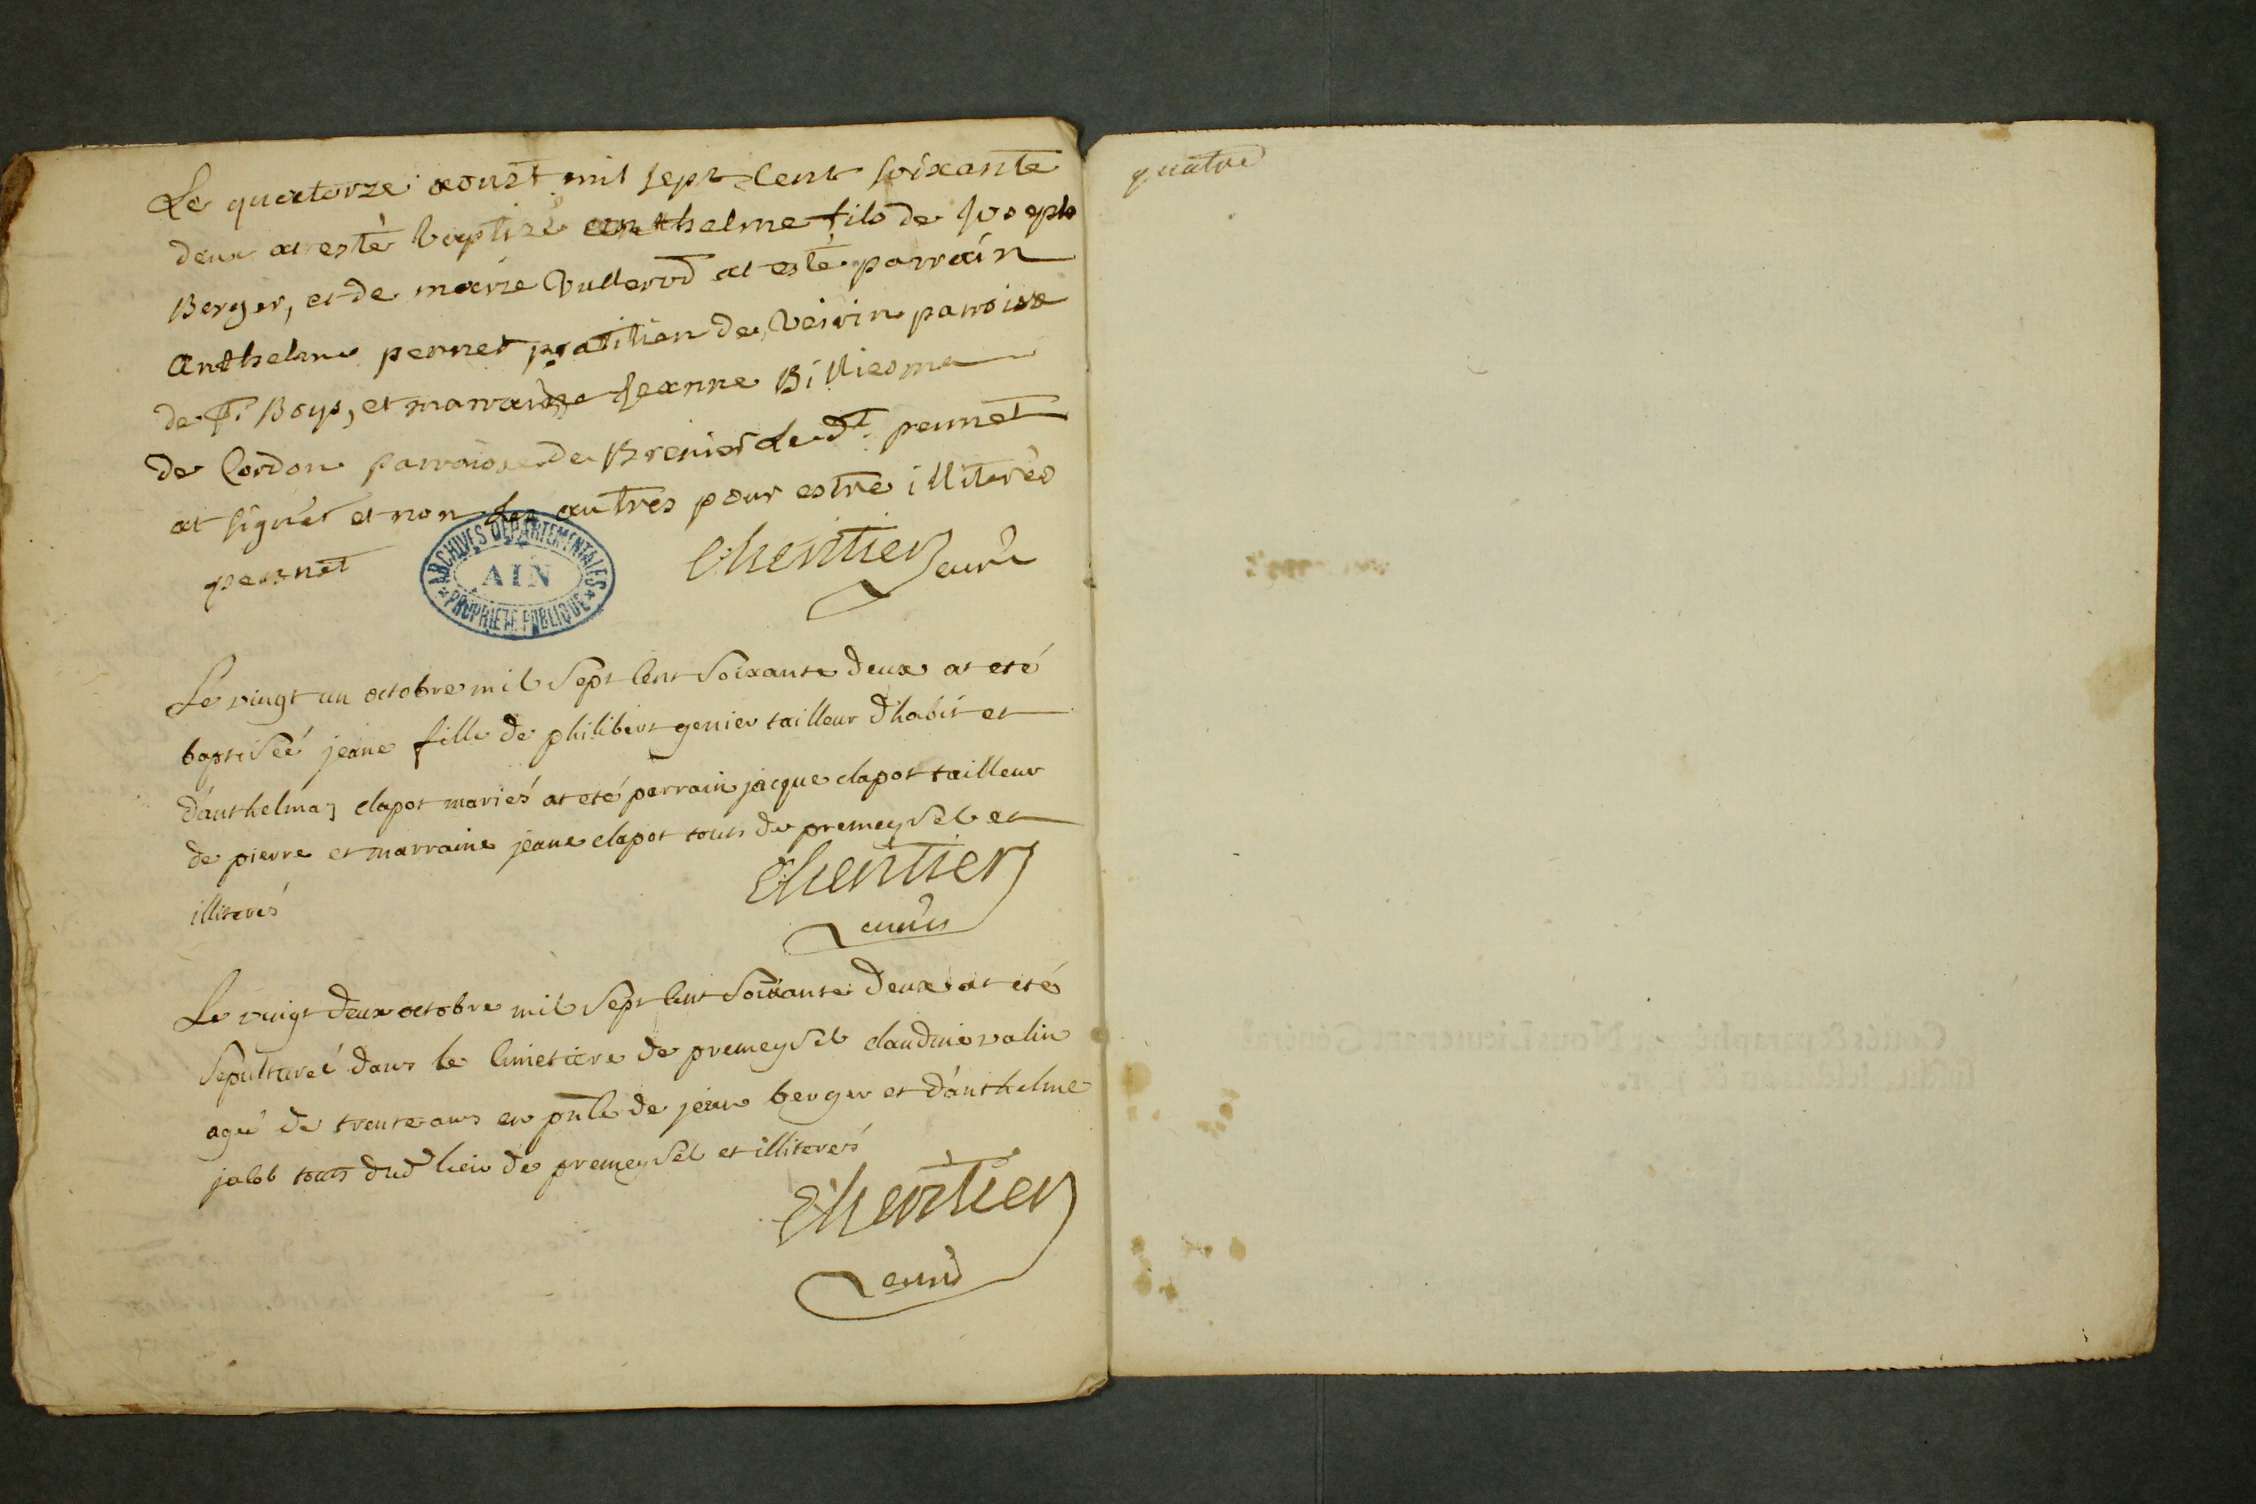 Le quatorze aoust mil sept cent soixante
deux at esté baptizé anthelme fils de Joseph
Berger, et de marie Vullerod at esté parrain
Anthelme pernet pratitien de Veirin parroisse
de St Boys, et marraine Jeanne Billiesma
de Cordon parroisse de Brenier le dt. pernet
at signét et non les autres pour estre illiterés
pernet Chentier curé
ARCHIVES DEPARTEMENTALES
AIN
PROPRIETE PUBLIQUE
Le vingt un octobre mil sept cent soixante deux at eté
baptiseé jeane fille de philibert genier tailleur d'habit et
d'anthelma clapot mariés at eté parrain jacque clapot tailleur
de pierre et marraine jeane clapot touts de premeysel et
illiterés Chentier
curé
Le vingt deux octobre mil sept cent soixante deux at eté
sepultureé dans le cimetiere de premeysel claudine valin
ageé de trente ans en pnce de jean berger et d'anthelme
jacob touts dud lieu de premeysel et illiterés
Chentier
curé
quatre